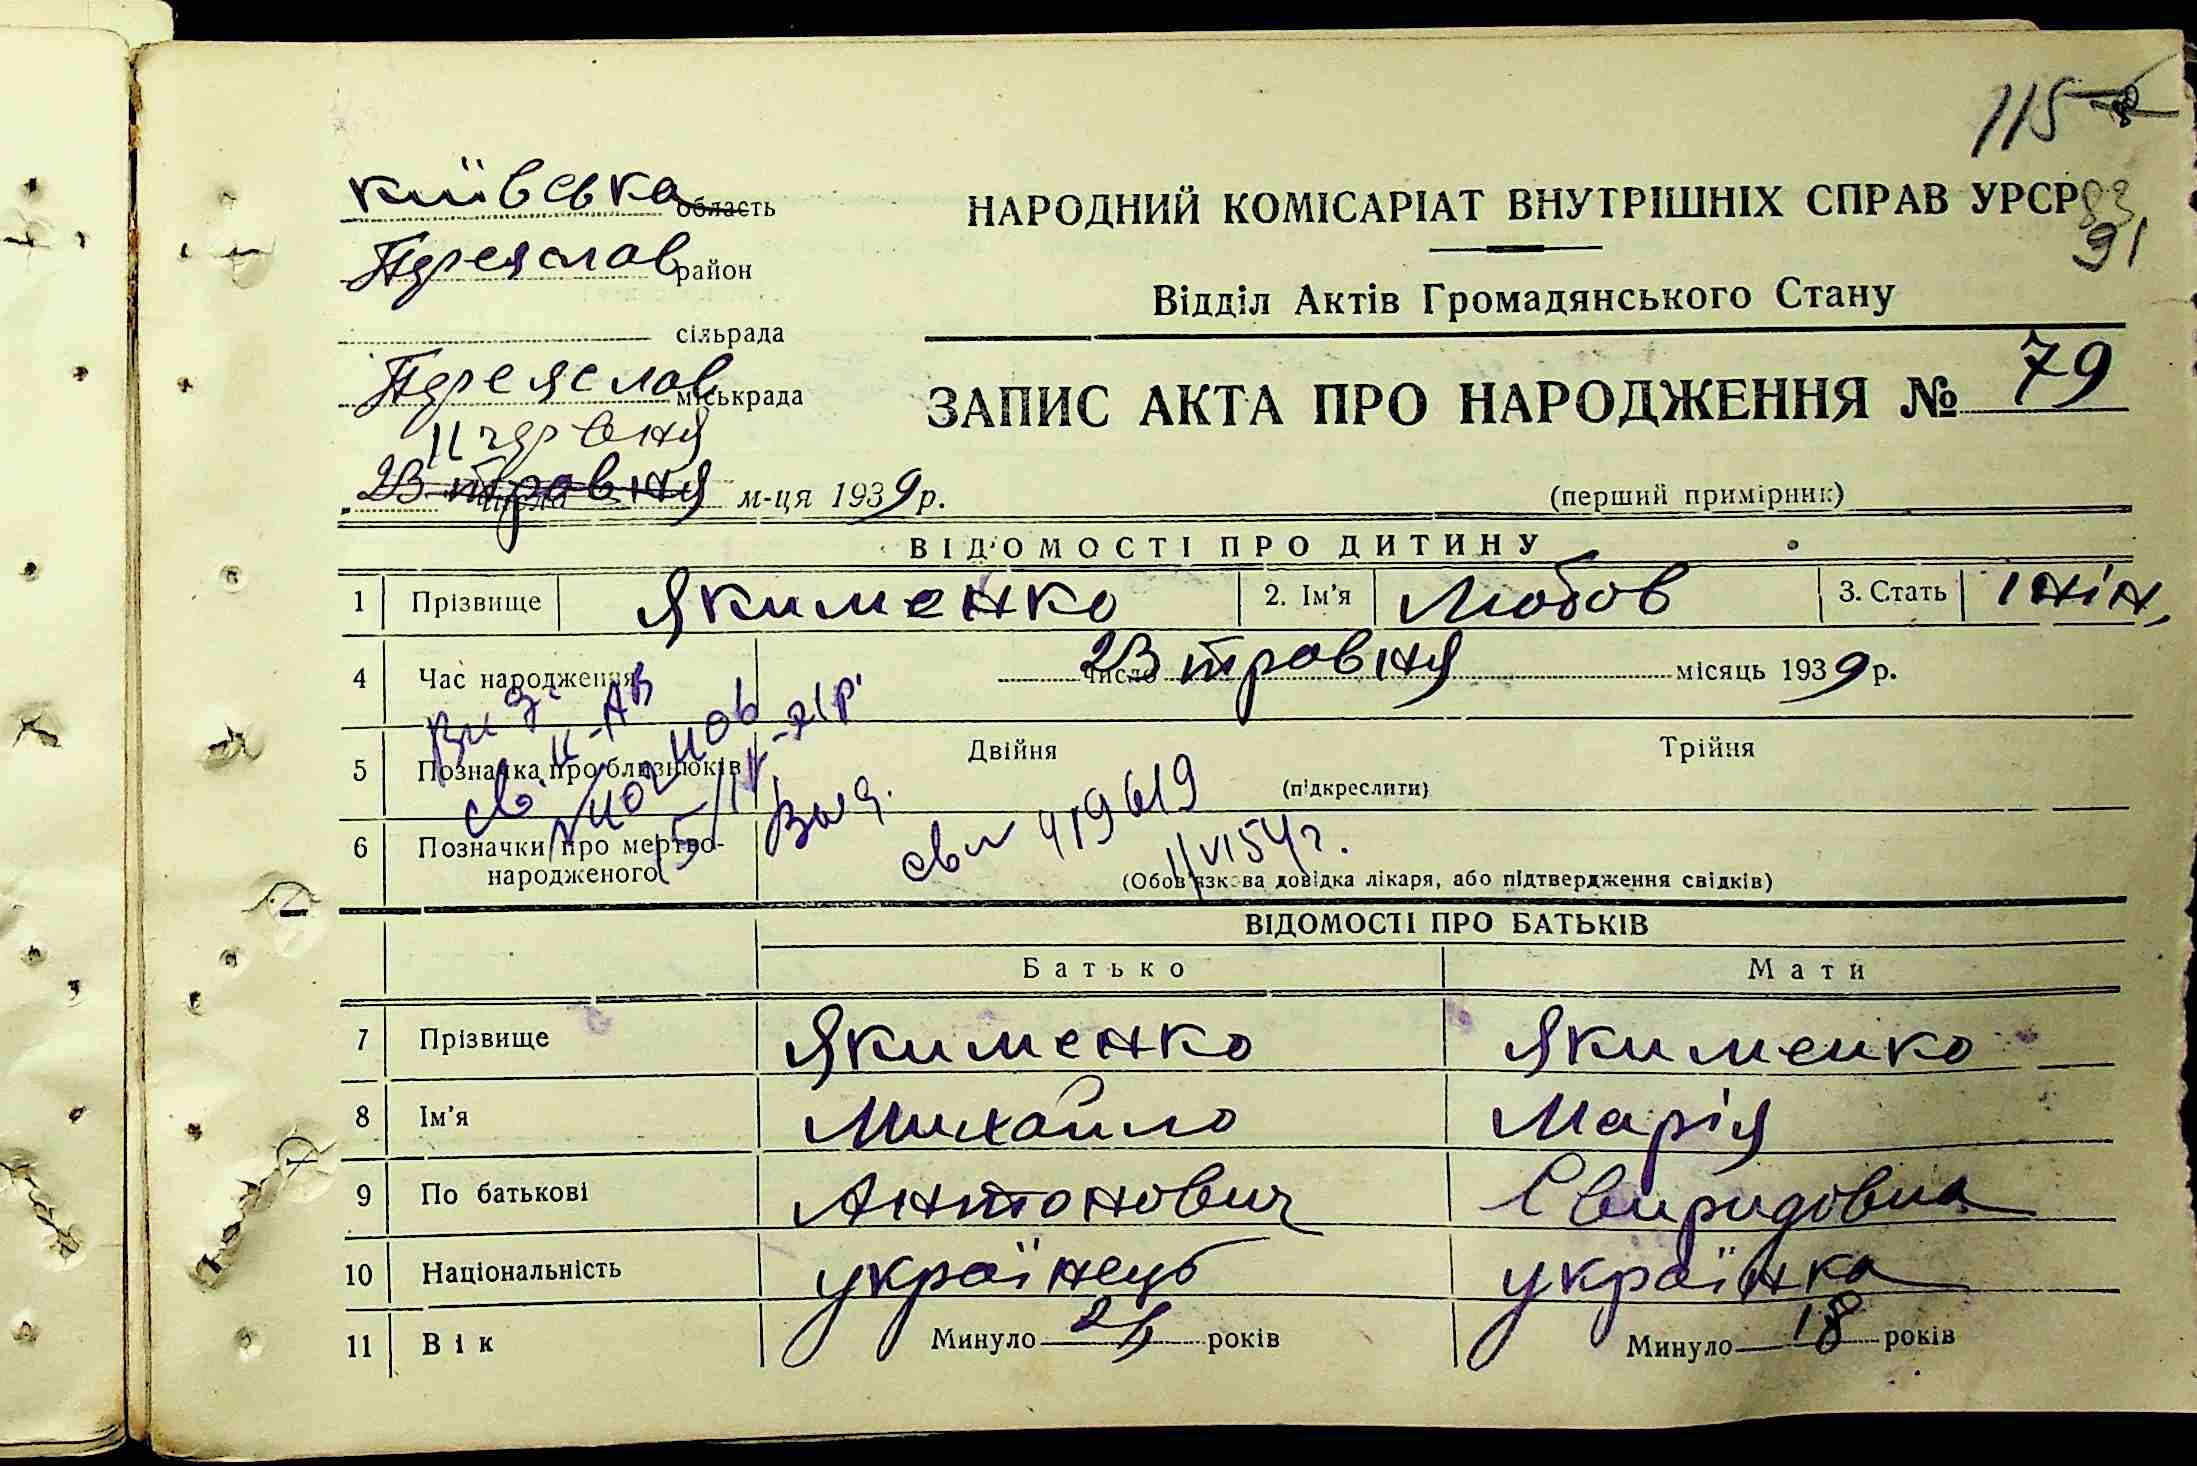 115
київська область
НАРОДНИЙ КОМІСАРІАТ ВНУТРІШНІХ СПРАВ УРСР
83
91
Переяслав район
Відділ Актів Громадянського Стану
сільрада
Переяслав міськрада
ЗАПИС АКТА ПРО НАРОДЖЕННЯ № 79
11 червня
23 травня числа м-ця 1939 р.
(перший примірник)
ВІДОМОСТІ ПРО ДИТИНУ
1 Прізвище Якименко 2. Ім'я Любов 3. Стать жін.
4 Час народження 23 число травня місяць 1939 р.
5 Позначка про близнюків Двійня Трійня
(підкреслити)
Вид.
св. 419619
11/VI 54 г.
6 Позначки про мертво-
народженого
(Обов'язкова довідка лікаря, або підтвердження свідків)
ВІДОМОСТІ ПРО БАТЬКІВ
Батько Мати
7 Прізвище Якименко Якименко
8 Ім'я Михайло Марія
9 По батькові Антонович Свиридовна
10 Національність українець українка
11 Вік Минуло 24 років Минуло 18 років